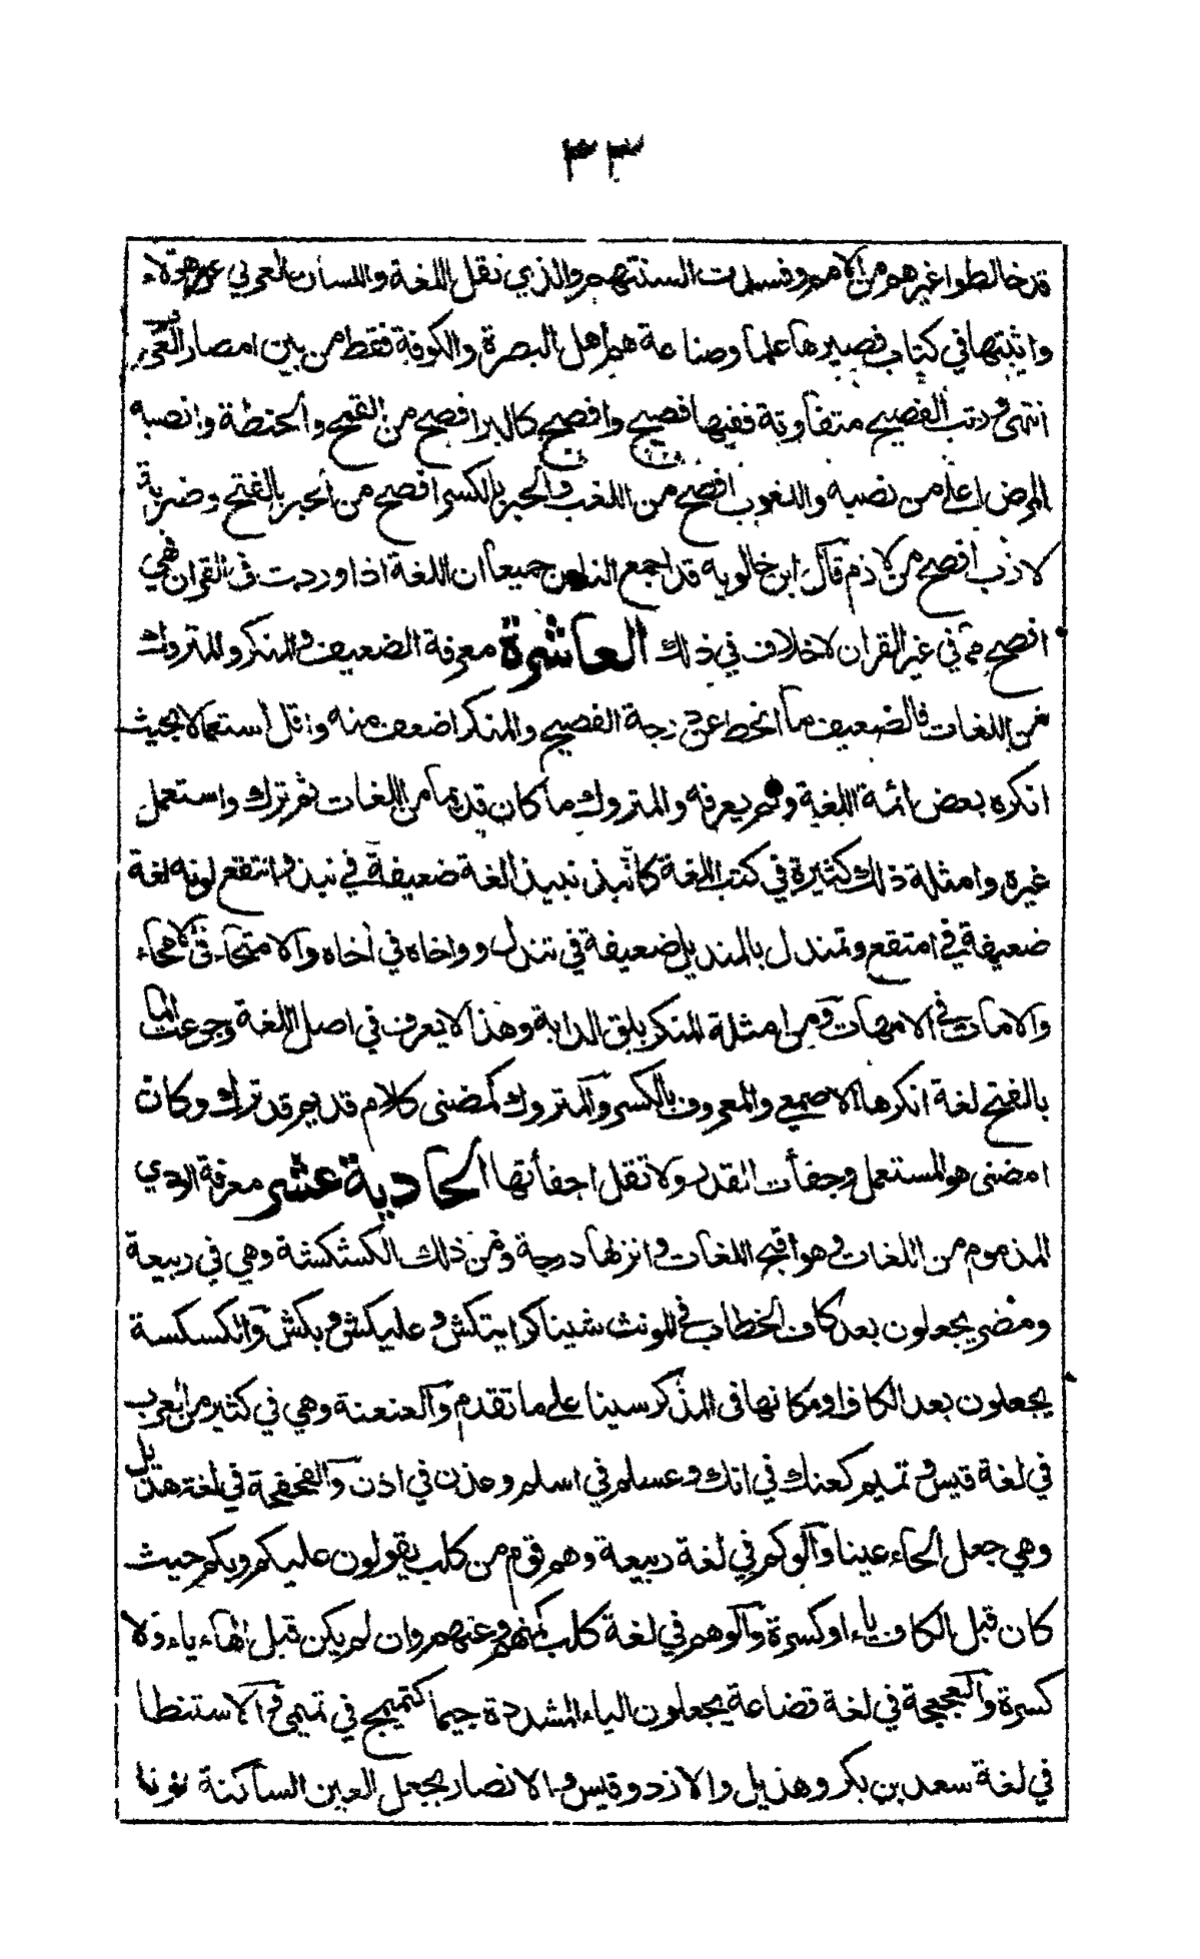 ٣٣
قد خالطوا غيرهم من الامم وفسدت السنتهم والذي نقل اللغة واللسان العربي عن هؤلاء
واثبتها في كتاب فصيرها علما وصناعة هم اهل البصرة والكوفة فقط من بين امصار العرب
انتهى رتب الفصيح متفاوتة ففيها فصيح وافصح كالبر افصح من القمح والحنطة وانصبه
المرض اعلى من نصبه واللغوب افصح من اللغب والحبر بالكسر افصح من الحبر بالفتح وضربة
لازب افصح من لازم قال ابن خالويه قد اجمع الناس جميعا ان اللغة اذا وردت في القران فهي
افصح مما في غير القران لا خلاف في ذلك العاشرة معرفة الضعيف والمنكر والمتروك
من اللغات فالضعيف ما انحط عن درجة الفصيح والمنكر اضعف منه واقل استعمالا بحيث
انكره بعض ائمة اللغة ولم يعرفه والمتروك ما كان قديما من اللغات ثم ترك واستعمل
غيره وامثلة ذلك كثيرة في كتب اللغة كانبذ نبيذا لغة ضعيفة في نبذ وانتقع لونه لغة
ضعيفة في امتقع وتمندل بالمنديل ضعيفة في تندل وواخاه في أخاه والامتحاء في الامحاء
والامات في الامهات ومن امثلة المنكر بلق الدابة وهذا لا يعرف في اصل اللغة وجرعت الماء
بالفتح لغة انكرها الاصمعي والمعروف بالكسر والمتروك كمضنى كلام قديم قد ترك وكان
امضنى هو المستعمل وجفأت القدر ولا تقل اجفأتها الحادية عشر معرفة الردي
المذموم من اللغات وهو اقبح اللغات وانزلها درجة ومن ذلك الكشكشة وهي في ربيعة
ومضر يجعلون بعد كاف الخطاب في المونث شينا كرايتكش وعليكش وبكش والكسكسة
يجعلون بعد الكاف او مكانها في المذكر سينا على ما تقدم والعنعنة وهي في كثير من العرب
في لغة قيس وتميم كعنك في انك وعسلم في اسلم وعذن في اذن والفحفحة في لغة هذيل
وهي جعل الحاء عينا والوكم في لغة ربيعة وهم قوم من كلب يقولون عليكم وبكم حيث
كان قبل الكاف ياء او كسرة والوهم في لغة كلب كمنهم وعنهم وان لم يكن قبل الهاء ياء ولا
كسرة والعجعجة في لغة قضاعة يجعلون الياء المشددة جيما كتميمج في تميمى والاستنطا
في لغة سعد بن بكر وهذيل والازد وقيس والانصار بجعل العين الساكنة نونا